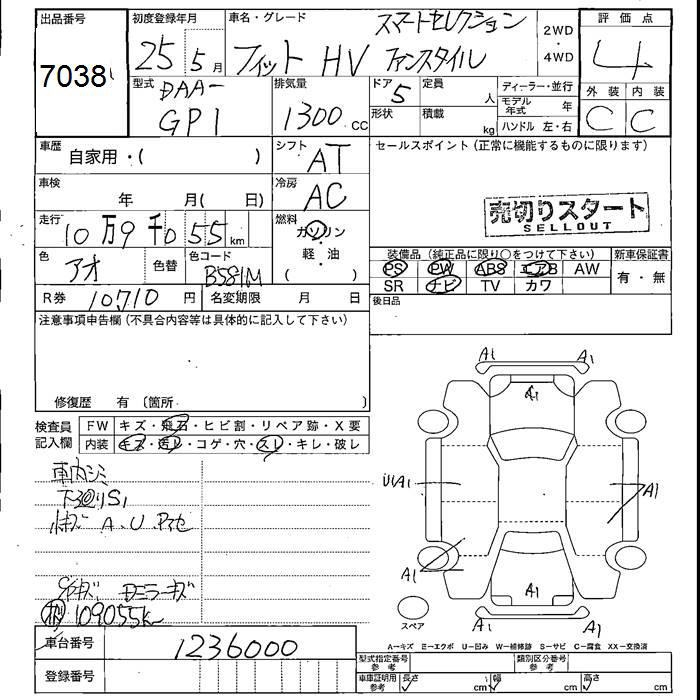 出品番号
7038
初度登録年月
25 5月
車名・グレード
スマートセレクション
フィット HV ファンスタイル
2WD・4WD
評価点
4
型式
DAA-
GP1
排気量
1300 cc
ドア 5
定員 人
形状
積載 kg
ディーラー・並行
モデル年式 年
ハンドル 左・右
外装 内装
C C
車歴
自家用・( )
シフト
AT
セールスポイント (正常に機能するものに限ります)
車検
年 月( 日)
冷房
AC
売切りスタート
SELLOUT
走行
10万9千055 km
燃料
ガソリン・軽・油
( )
色
アオ
色替
色コード
B581M
装備品 (純正品に限り○をつけて下さい)
PS PW ABS エアB AW
SR ナビ TV カワ
新車保証書
有・無
後日品
R券 10710 円
名変期限 月 日
注意事項申告欄 (不具合内容等は具体的に記入して下さい)
修復歴 有 〔箇所 〕
検査員記入欄
FW キズ・飛石・ヒビ割・リペア跡・X要
内装 キズ・汚レ・コゲ・穴・スレ・キレ・破レ
車内シミ
下廻りS1
A.U.
109055K
車台番号
1236000
登録番号
A1 A1
A1
U1A1
A1
A1
A1
A1 A1
スペア
A-キズ E-エクボ U-凹み W-補修跡 S-サビ C-腐食 XX-交換済
型式指定番号 参考
類別区分番号 参考
車庫証明用 参考
長さ cm
幅 cm
高さ cm